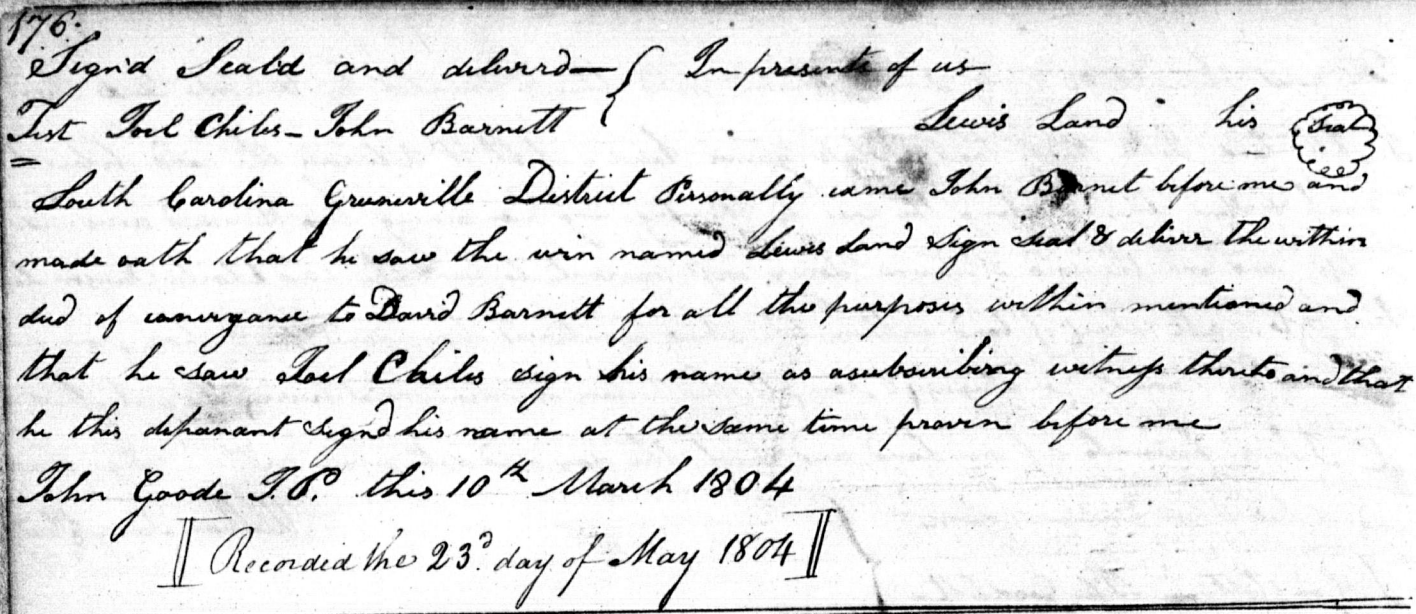 176.
Sign'd Seal'd and deliverd — { In presente of us
Test Joel Chiles - John Barnett { Lewis Land his Seal
South Carolina Greenville District Personally came John Barnet before me and
made oath that he saw the win named Lewis Land Sign Seal & deliver the within
deed of conveyance to David Barnett for all the purposes within mentioned and
that he saw Joel Chiles sign his name as a subscribing witness thereto and that
he this deponant Signd his name at the same time proven before me
John Goode J.P. this 10th March 1804
Recorded the 23d. day of May 1804